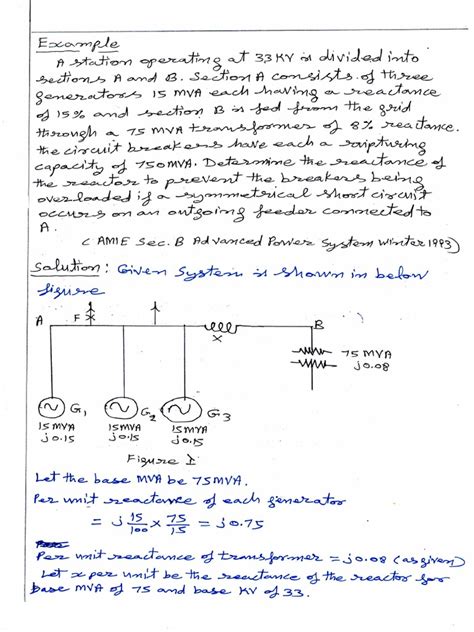 Example
A station operating at 33KV is divided into
sections A and B. Section A consists of three
generators 15 MVA each having a reactance
of 15% and section B is fed from the grid
through a 75 MVA transformer of 8% reactance.
the circuit breakers have each a rupturing
capacity of 750MVA. Determine the reactance of
the reactor to prevent the breakers being
overloaded if a symmetrical short circuit
occurs on an outgoing feeder connected to
A.
( AMIE Sec. B Advanced Power System Winter 1993)
Solution: Given System is shown in below
figure
A F B
X
75 MVA
j0.08
G1 G2 G3
15MVA 15MVA 15MVA
j0.15 j0.15 j0.15
Figure I
Let the base MVA be 75MVA.
Per unit reactance of each generator
= j 15/100 x 75/15 = j0.75
Per unit reactance of transformer = j0.08 (as given)
Let x per unit be the reactance of the reactor for
base MVA of 75 and base KV of 33.